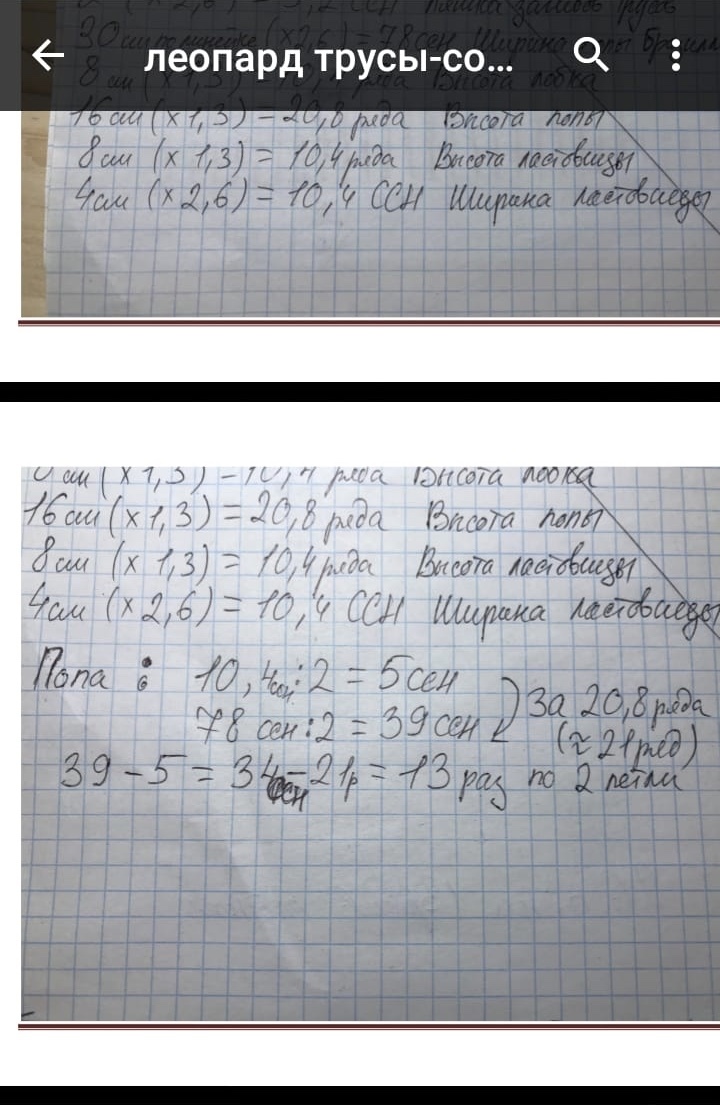 леопард трусы-со...
30 см по линейке (х2,6) = 78 ссн Ширина попы
8 см (х 1,3) = 10,4 ряда Высота лобка
16 см (х 1,3) = 20,8 ряда Высота попы
8 см (х 1,3) = 10,4 ряда Высота ластовицы
4 см (х 2,6) = 10,4 ССН Ширина ластовицы
8 см (х 1,3) = 10,4 ряда Высота лобка
16 см (х 1,3) = 20,8 ряда Высота попы
8 см (х 1,3) = 10,4 ряда Высота ластовицы
4 см (х 2,6) = 10,4 ССН Ширина ластовицы
Попа : 10,4 ссн : 2 = 5 ссн
78 ссн : 2 = 39 ссн
за 20,8 ряда
(≈ 21 ряд)
39 - 5 = 34 ссн - 21р = 13 раз по 2 петли